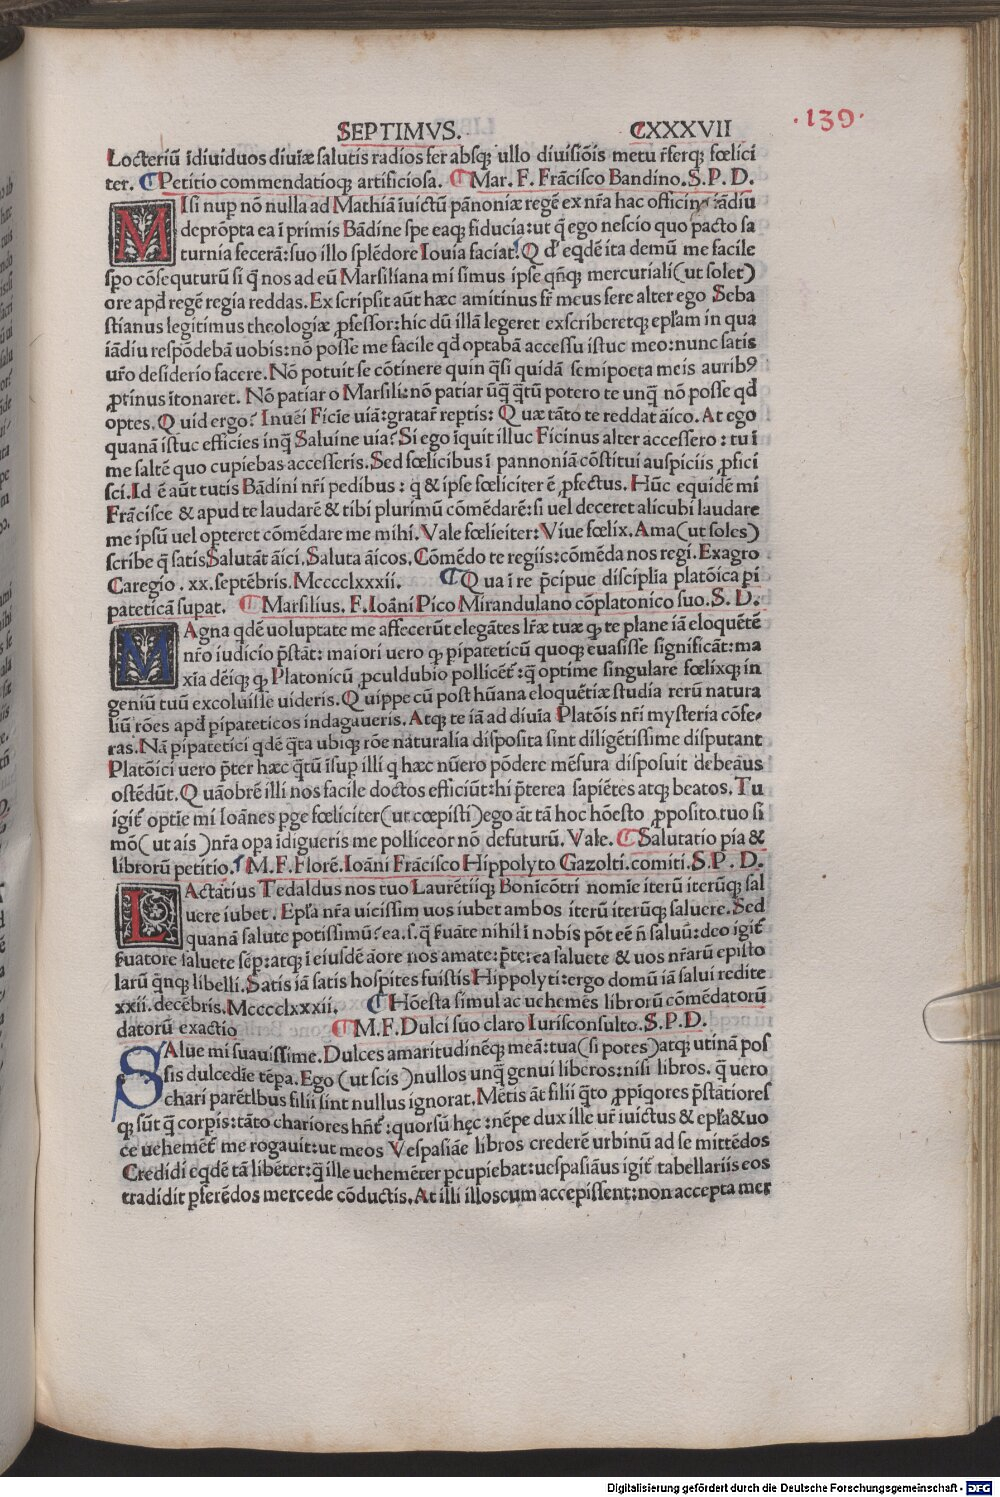 SEPTIMVS. CXXXVII
·139·
Locteriū īdiuiduos diuiæ salutis radios fer absq; ullo diuisiōis metu r̄ferq; fœlici
ter. ¶ Petitio commendatioq; artificiosa. ¶ Mar. F. Frācisco Bandino. S. P. D.
MIsi nup nō nulla ad Mathiā īuictū pānoniæ regē ex nr̄a hac officina iādiu
deprōpta ea ī primis Bādine spe eaq; fiducia: ut q̄ ego nescio quo pacto sa
turnia fecerā: suo illo splēdore Iouia faciat. Qd' eqdē ita demū me facile
spo cōsequuturū si q̄ nos ad eū Marsiliana mi simus ipse qn̄q; mercuriali (ut soles)
ore apd regē regia reddas. Ex scripsit aūt hæc amitinus fr̄ meus fere alter ego Seba
stianus legitimus theologiæ ꝓfessor: hic dū illā legeret exscriberetq; epl̄am in qua
iādiu respōdebā uobis: nō posse me facile qd optabā accessu istuc meo: nunc satis
ur̄o desiderio facere. Nō potuit se cōtinere quin q̄si quidā semipoeta meis auribꝰ
ꝓtinus ītonaret. Nō patiar o Marsili: nō patiar ūq̄ q̄tū potero te unq̄ nō posse qd
optes. Quid ergo? Inuēi Ficīe uiā: gratar̄ reptis: Quæ tāto te reddat āico. At ego
quanā istuc efficies inq̄ Saluine uia? Si ego īquit illuc Ficinus alter accessero: tu ī
me saltē quo cupiebas accesseris. Sed fœlicibus ī pannoniā cōstitui auspiciis ꝓfici
sci. Id ē aūt tutis Bādini nr̄i pedibus: q & ipse fœliciter ē ꝓfectus. Hūc equidē mi
Frācisce & apud te laudarē & tibi plurimū cōmēdarē: si uel deceret alicubi laudare
me ipsū uel opteret cōmēdare me mihi. Vale fœlieiter: Viue fœlix. Ama (ut soles)
scribe q̄ satis. Salutāt āici. Saluta āicos. Cōmēdo te regiis: cōmēda nos regi. Exagro
Caregio. xx. septēbris. Mcccclxxxii. ¶ Qua ī re p̄cipue disciplia platōica pi
pateticā supat. ¶ Marsilius. F. Ioāni Pico Mirandulano cōplatonico suo. S. D.
MAgna qdē uoluptate me affecerūt elegātes lr̄æ tuæ q; te plane iā eloquētē
nr̄o iudicio p̄stāt: maiori uero q; pipateticū quoq; euasisse significāt: ma
xīa dēiq; q; Platonicū ꝓculdubio pollicēt̄: q̄ optime singulare fœlixq; in
geniū tuū excoluisse uideris. Quippe cū post hūana eloquētiæ studia rerū natura
liū rōes apd pipateticos indagaueris. Atq; te iā ad diuīa Platōis nr̄i mysteria cōfe⸗
ras. Nā pipatetici qdē q̄ta ubiq; rōe naturalia disposita sint diligētissime disputant
Platōici uero p̄ter hæc q̄tū īsup illi q hæc nūero pōdere mēsura disposuit debeāus
ostēdūt. Quāobrē illi nos facile doctos efficiūt: hi p̄terea sapiētes atq; beatos. Tu
igit̄ optīe mi Ioānes pge fœliciter (ut cœpisti) ego āt tā hoc hōesto ꝓposito tuo si
mō (ut ais) nr̄a opa īdigueris me polliceor nō defuturū. Vale. ¶ Salutatio pia &
librorū petitio. ¶ M. F. Florē. Ioāni Frācisco Hippolyto Gazolti. comiti. S. P. D.
LActātius Tedaldus nos tuo Laurētiiq; Bonicōtri nomīe iterū iterūq; sal
uere iubet. Epl̄a nr̄a uicissim uos iubet ambos iterū iterūq; saluere. Sed
quanā salute potissimū? ea. s. q̄ ẜuāte nihil ī nobis pōt eē n̄ saluū: deo igit̄
ẜuatore saluete sēp: atq; ī eiusdē āore nos amate: p̄terea saluete & uos nr̄arū episto
larū q̄nq; libelli. Satis iā satis hospites fuistis Hippolyti: ergo domū iā salui redite
xxii. decēbris. Mcccclxxxii. ¶ Hōesta simul ac uehemēs librorū cōmēdatorū
datorū exactio ¶ M. F. Dulci suo claro Iurisconsulto. S. P. D.
SAlue mi suauissime. Dulces amaritudinēq; meā: tua (si potes) atq; utinā pos
sis dulcedīe tēpa. Ego (ut scis) nullos unq̄ genui liberos: nisi libros. q̄ uero
chari parētlbus filii sint nullus ignorat. Mētis āt filii q̄to ꝓpiqores p̄stātiores
q; sūt q̄ corpis: tāto chariores hn̄t̄: quorsū hęc: nēpe dux ille ur̄ iuictus & epl̄a & uo
ce uehemēt̄ me rogauit: ut meos Vespasiāe libros crederē urbinū ad se mittēdos
Credidi eqdē tā libēter: q̄ ille uehemēter pcupiebat: uespasiāus igit̄ tabellariis eos
tradidit pferēdos mercede cōductis. At illi illoscum accepissent: non accepta mer
Digitalisierung gefördert durch die Deutsche Forschungsgemeinschaft - DFG